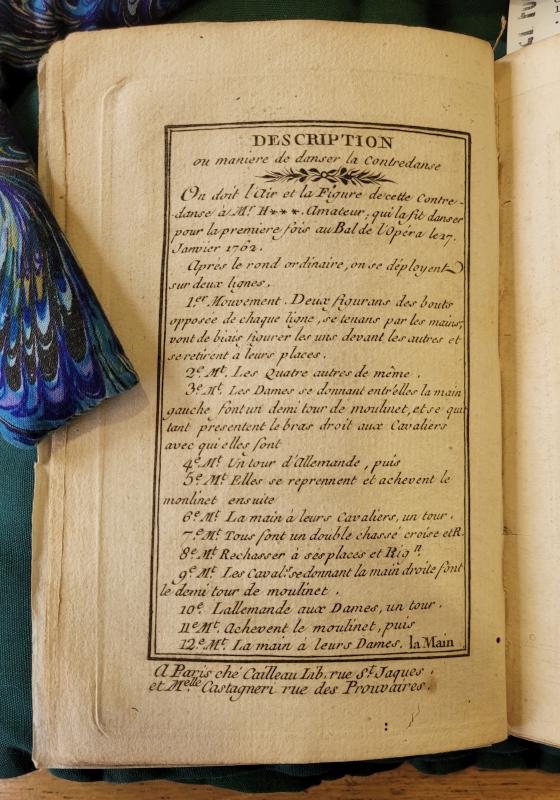 DESCRIPTION
ou maniere de danser la Contredanse
On doit l'Air et la Figure de cette Contre-
danse à Mr. H***. Amateur; qui la fit danser
pour la premiere fois au Bal de l'Opéra le 17.
Janvier 1762.
Après le rond ordinaire, on se déployent
sur deux lignes.
1er. Mouvement. Deux figurans des bouts
opposée de chaque ligne, se tenans par les mains,
vont de biais figurer les uns devant les autres et
se retirent à leurs places.
2e. Mt. Les Quatre autres de même.
3e. Mt. Les Dames se donnant entr'elles la main
gauche font un demi tour de moulinet, et se quit
tant presentent le bras droit aux Cavaliers
avec qui elles font
4e. Mt. Un tour d'Allemande, puis
5e. Mt. Elles se reprennent et achevent le
monlinet ensuite
6e. Mt. La main à leurs Cavaliers, un tour.
7e. Mt. Tous font un double chassé croise et R.
8e. Mt. Rechasser à ses places et Rign.
9e. Mt. Les Cavalrs. se donnant la main droite font
le demi tour de moulinet.
10e. Lallemande aux Dames, un tour.
11e Mt. Achevent le moulinet, puis
12e. Mt. La main à leurs Dames. la Main
A Paris ché Cailleau Lib. rue St. Jaques.
et Melle Castagneri rue des Prouvaires.